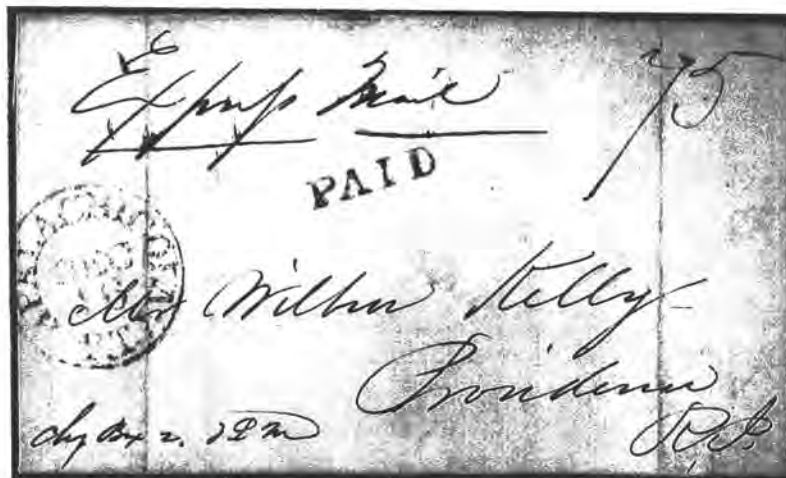 Express Mail
75
PAID
Mr Wilbur Kelly
Providence
R.I.